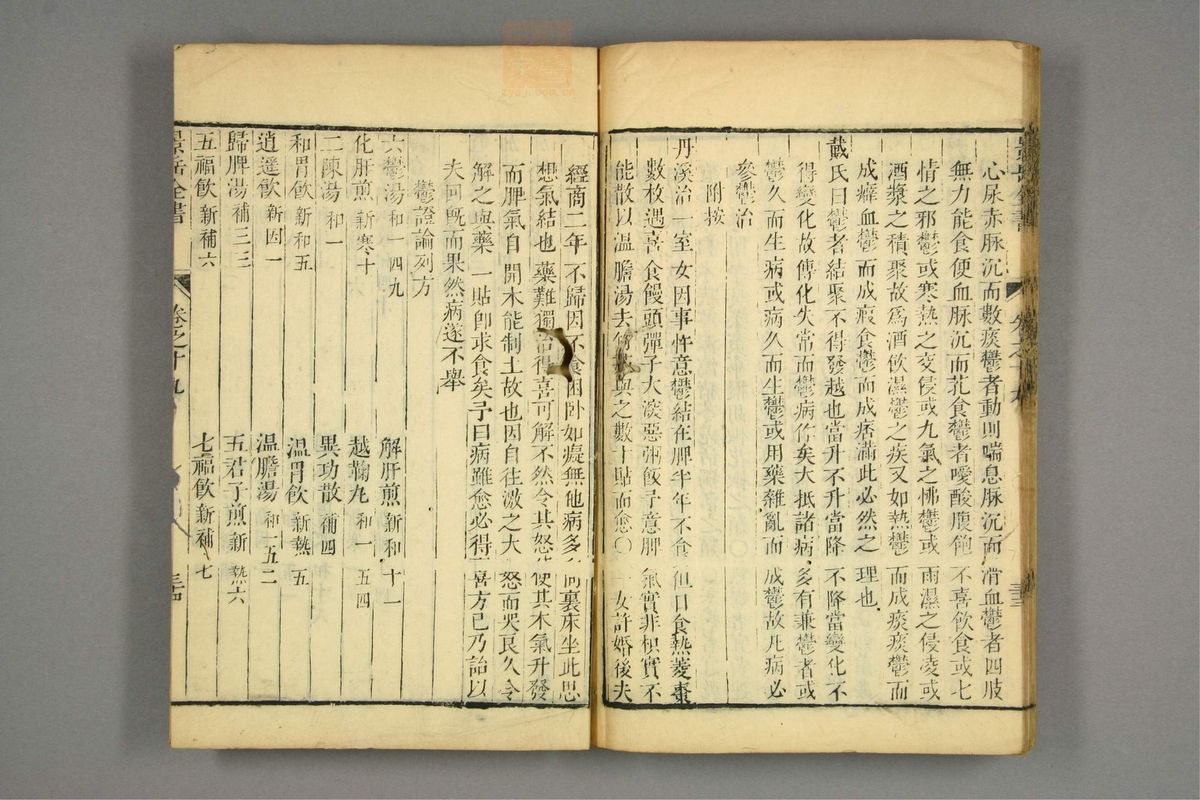 心尿赤脉沉而數痰鬱者動則喘息脉沉而滑血鬱者四肢
無力能食便血脉沉而芤食鬱者噯酸腹飽不喜飲食或七
情之邪鬱或寒熱之交侵或九氣之怫鬱或雨濕之侵凌或
酒漿之積聚故爲酒飲濕鬱之疾又如熱鬱而成痰痰鬱而
成癖血鬱而成瘕食鬱而成痞滿此必然之理也
戴氏曰鬱者結聚不得發越也當升不升當降不降當變化不
得變化故傳化失常而鬱病作矣大抵諸病多有兼鬱者或
鬱久而生病或病久而生鬱或用藥雜亂而成鬱故凡病必
參鬱治
附按
丹溪治一室女因事忤意鬱結在脾半年不食但日食熱菱棗
數枚遇喜食饅頭彈子大深惡粥飯予意脾氣實非枳實不
能散以温膽湯去竹茹與之數十貼而愈〇一女許婚後夫
經商二年不歸因不食困卧如癡無他病多向裏床坐此思
想氣結也藥難獨治得喜可解不然令其怒使其木氣升發
而脾氣自開木能制土故也因自往激之大怒而哭良久令
解之與藥一貼卽求食矣予曰病雖愈必得喜方已乃詒以
夫回既而果然病遂不舉
鬱證論列方
六鬱湯 和一四九
解肝煎 新和十一
化肝煎 新寒十
越鞠丸 和一五四
二陳湯 和一
異功散 補四
和胃飲 新和五
温胃飲 新熱五
逍遥飲 新因一
温膽湯 和一五二
歸脾湯 補三三
五君子煎 新熱六
五福飲 新補六
七福飲 新補七
景岳全書
卷之十九
三四